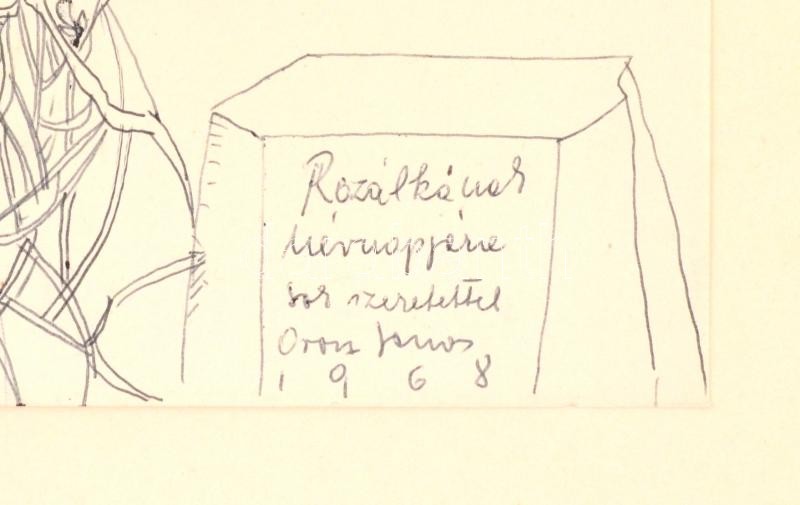 Rozálkának
Névnapjára
sok szeretettel
Orosz János
1968